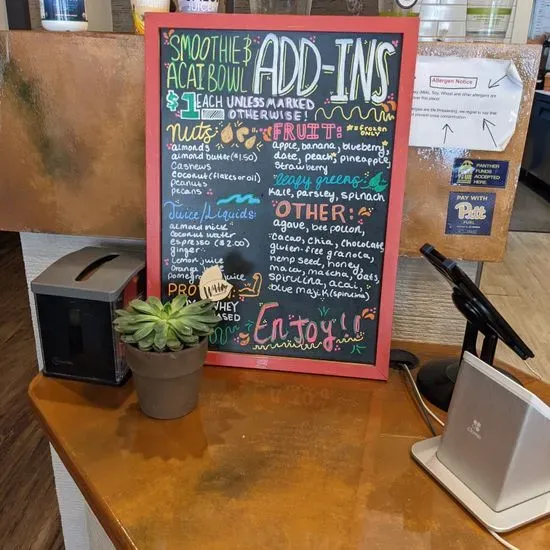 SMOOTHIE &
ACAI BOWL
ADD-INS
$1 EACH UNLESS MARKED
OTHERWISE!
NUTS
almonds
almond butter ($1.50)
cashews
coconut (flakes or oil)
peanuts
pecans
Juice/Liquids:
almond milk
coconut water
espresso ($2.00)
ginger
Lemon juice
Orange
juice
PRO
WHEY
FRUIT:
*frozen
ONLY
apple, banana, blueberry,
date, peach, pineapple,
strawberry
leafy greens:
Kale, parsley, spinach
OTHER:
agave, bee pollen,
cacao, chia, chocolate,
gluten-free granola,
hemp seed, honey,
maca, matcha, oats,
spirulina, acai,
blue majik (spirulina)
Enjoy!!
Allergen Notice
PANTHER
FUNDS
ACCEPTED
HERE
PAY WITH
Pitt
FUEL
Clover